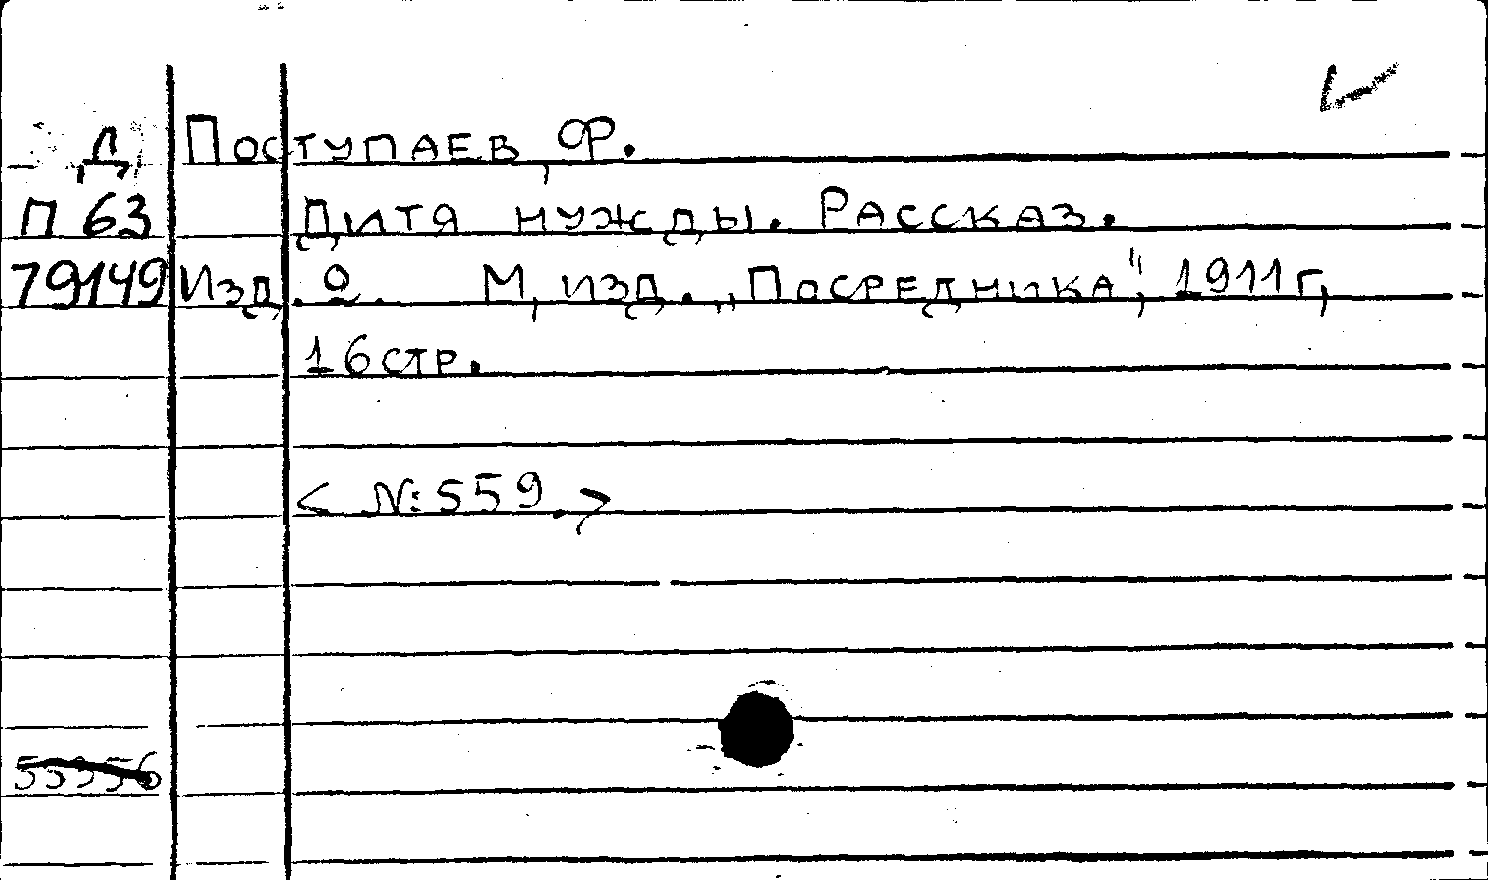 Д Поступаев, Ф.
П 63 Дитя нужды. Рассказ.
79149 Изд. 2. М, изд. „Посредника", 1911 г,
16 стр.
< №: 559. >